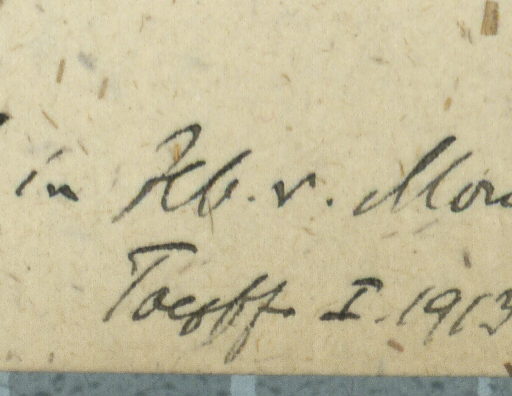 in Hb. v. Mon
Toepff. I. 1913